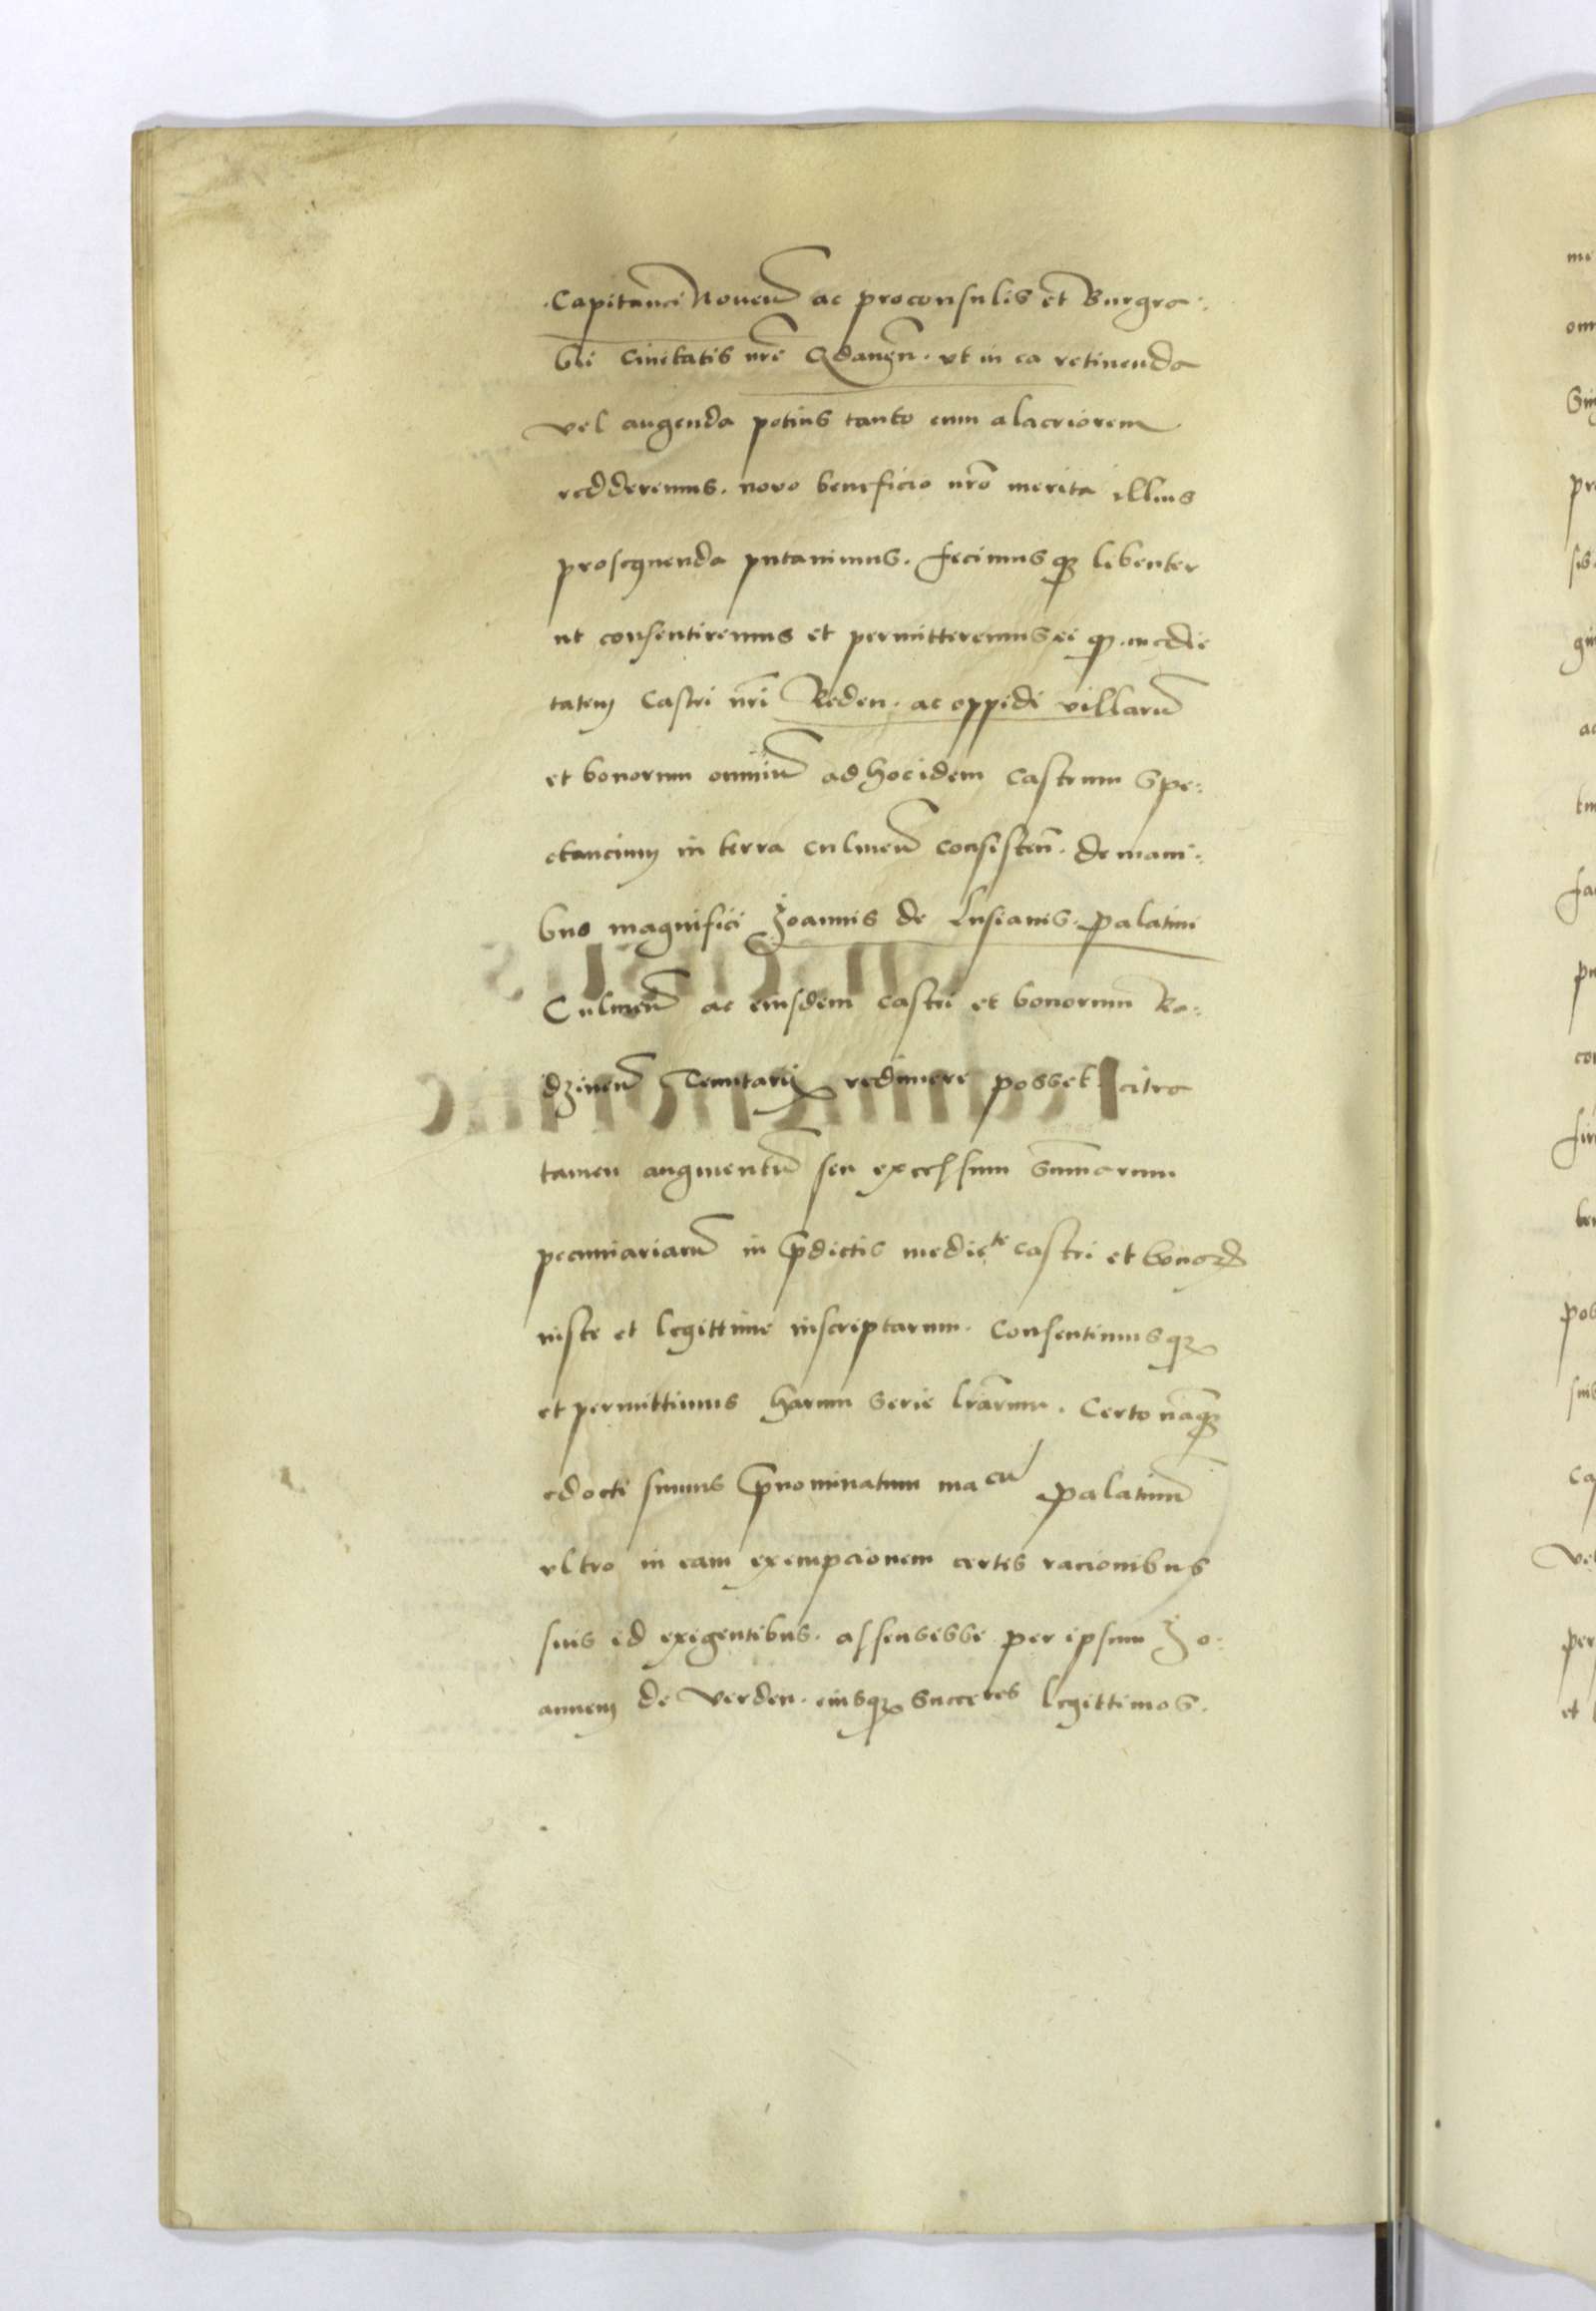 Capitanei Noven ac proconsulis et Burgra:
bii Civitatis nre Gdanen. ut in ea retinenda
vel augenda potius tanto eum alacriorem
redderemus. novo beneficio nro merita illius
prosequenda putavimus. fecimusq libenter
ut consentiremus et permitteremus ei q. medie
tatem Castri nri Reden. ac oppidi villaru
et bonorum omniu ad hoc idem Castrum Spe:
ctancium in terra culmen consisten. de mani:
bus magnifici Joannis de Lusianis. palatini
Culmen ac eiusdem castri et bonorum Ra:
dzinen Tenutarij redimere posset citra
tamen augmentu seu excessum Summarum
pecuniariaru in pdictis mediete castri et bonor
iuste et legittime inscriptarum. Consentimusq
et permittimus harum serie lrarum. Certo naq
edocti sumus pnominatum macu palatinu
ultro in eam exempcionem certis racionibus
suis id exigentibus. assensisse per ipsum Jo:
annem de Verden. eiusq succeres legittimos.